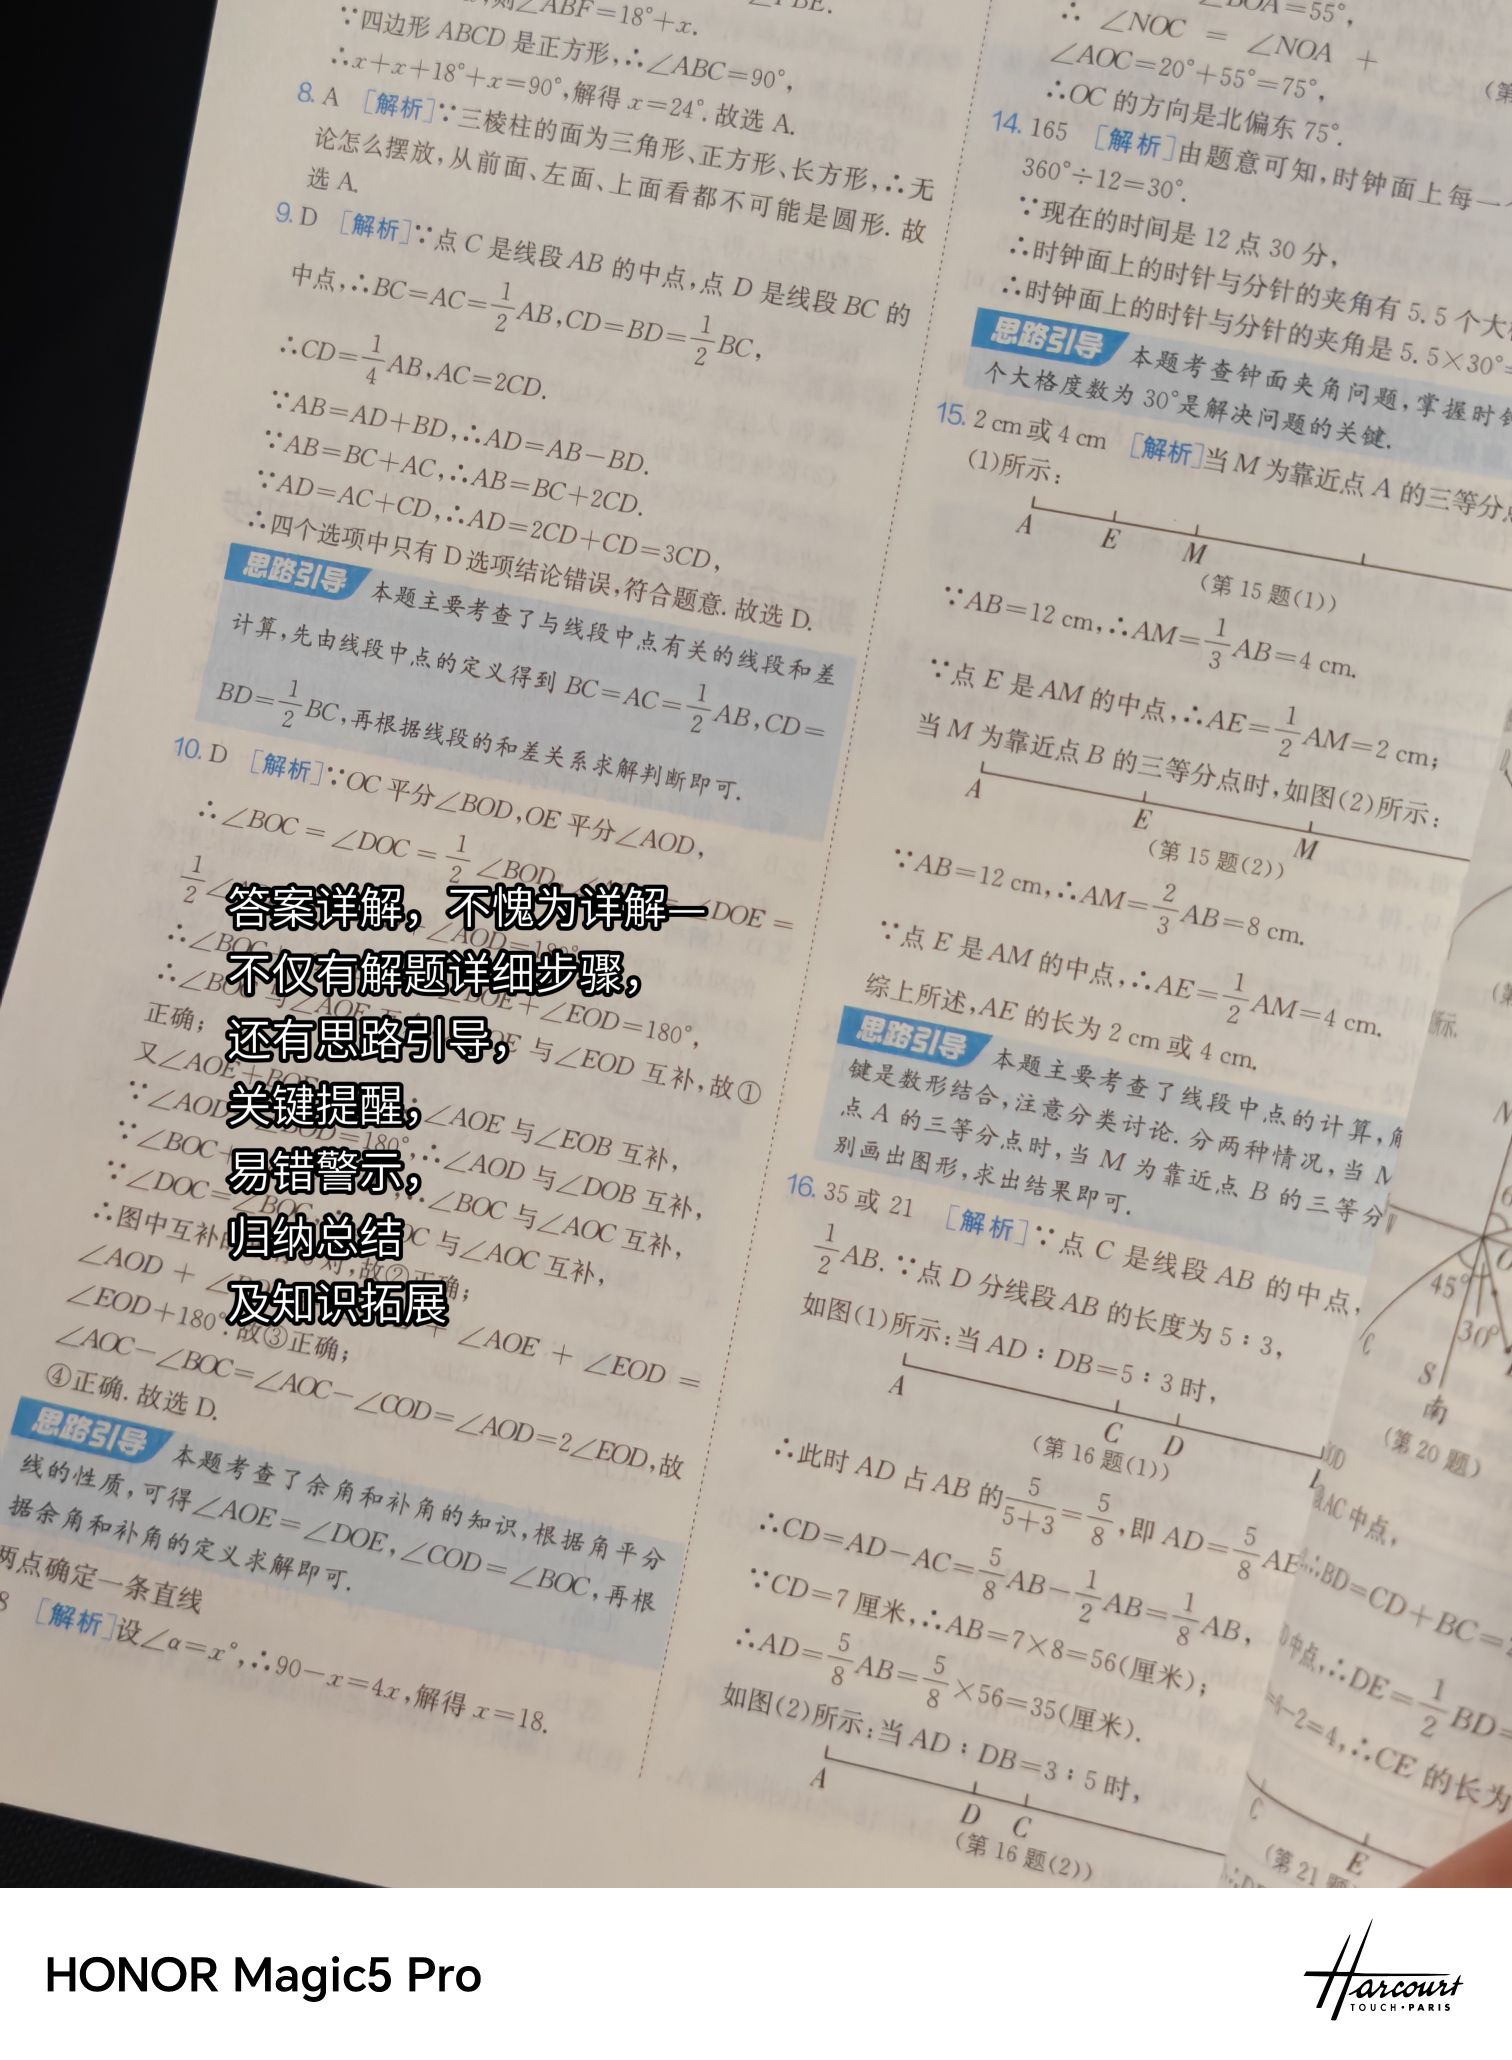 则∠ABF=18°+x.
∵四边形 ABCD 是正方形,∴∠ABC=90°,
∴x+x+18°+x=90°,解得 x=24°. 故选 A.
8. A [解析]∵三棱柱的面为三角形、正方形、长方形,∴无
论怎么摆放,从前面、左面、上面看都不可能是圆形. 故
选 A.
9. D [解析]∵点 C 是线段 AB 的中点,点 D 是线段 BC 的
中点,∴BC=AC=1/2AB,CD=BD=1/2BC,
∴CD=1/4AB,AC=2CD.
∵AB=AD+BD,∴AD=AB-BD.
∵AB=BC+AC,∴AB=BC+2CD.
∵AD=AC+CD,∴AD=2CD+CD=3CD,
∴四个选项中只有 D 选项结论错误,符合题意. 故选 D.
思路引导 本题主要考查了与线段中点有关的线段和差
计算,先由线段中点的定义得到 BC=AC=1/2AB,CD=
BD=1/2BC,再根据线段的和差关系求解判断即可.
10. D [解析]∵OC 平分∠BOD,OE 平分∠AOD,
∴∠BOC=∠DOC=1/2∠BOD, ∠DOE=
1/2∠ +∠AOD=180°
∴∠BOC ∠DOE+∠EOD=180°,
∴∠BOC 与∠AOE 与∠EOD 互补,故①
正确;
又∠AOE+∠BOE ∠AOE 与∠EOB 互补,
∵∠AOD ∠BOD=180°,∴∠AOD 与∠DOB 互补,
∵∠BOC+ ∴∠BOC 与∠AOC 互补,
∵∠DOC=∠BOC, OC 与∠AOC 互补,
∴图中互补的 对,故②正确;
∠AOD + + ∠AOE + ∠EOD =
∠EOD+180°. 故③正确;
∠AOC-∠BOC=∠AOC-∠COD=∠AOD=2∠EOD,故
④正确. 故选 D.
思路引导 本题考查了余角和补角的知识,根据角平分
线的性质,可得∠AOE=∠DOE,∠COD=∠BOC,再根
据余角和补角的定义求解即可.
两点确定一条直线
8 [解析]设∠α=x°,∴90-x=4x,解得 x=18.
答案详解，不愧为详解—
不仅有解题详细步骤，
还有思路引导，
关键提醒，
易错警示，
归纳总结
及知识拓展
∠BOA=55°,
∴ ∠NOC = ∠NOA +
∠AOC=20°+55°=75°,
∴OC 的方向是北偏东 75°.
14. 165 [解析]由题意可知,时钟面上每一
360°÷12=30°.
∵现在的时间是 12 点 30 分,
∴时钟面上的时针与分针的夹角有 5.5 个大
∴时钟面上的时针与分针的夹角是 5.5×30°=
思路引导 本题考查钟面夹角问题,掌握时钟
个大格度数为 30°是解决问题的关键.
15. 2 cm 或 4 cm [解析]当 M 为靠近点 A 的三等分点
(1)所示:
A E M
(第 15 题(1))
∵AB=12 cm,∴AM=1/3AB=4 cm.
∵点 E 是 AM 的中点,∴AE=1/2AM=2 cm;
当 M 为靠近点 B 的三等分点时,如图(2)所示:
A E M
(第 15 题(2))
∵AB=12 cm,∴AM=2/3AB=8 cm.
∵点 E 是 AM 的中点,∴AE=1/2AM=4 cm.
综上所述,AE 的长为 2 cm 或 4 cm.
思路引导 本题主要考查了线段中点的计算,
键是数形结合,注意分类讨论. 分两种情况,当 M
点 A 的三等分点时,当 M 为靠近点 B 的三等分
别画出图形,求出结果即可.
16. 35 或 21 [解析]∵点 C 是线段 AB 的中点,
1/2AB. ∵点 D 分线段 AB 的长度为 5∶3,
如图(1)所示:当 AD∶DB=5∶3 时,
A C D
(第 16 题(1))
∴此时 AD 占 AB 的5/(5+3)=5/8,即 AD=5/8AB
∴CD=AD-AC=5/8AB-1/2AB=1/8AB,
∵CD=7 厘米,∴AB=7×8=56(厘米);
∴AD=5/8AB=5/8×56=35(厘米).
如图(2)所示:当 AD∶DB=3∶5 时,
A D C
(第 16 题(2))
所示.
45°
30°
C
S
南
(第 20 题)
AC 中点,
∴BD=CD+BC=
中点,∴DE=1/2BD=
-2=4,∴CE 的长为
C E
(第 21 题
HONOR Magic5 Pro
Harcourt
TOUCH•PARIS